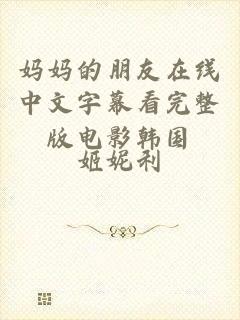 妈妈的朋友在线
中文字幕看完整
版电影韩国
姬妮利